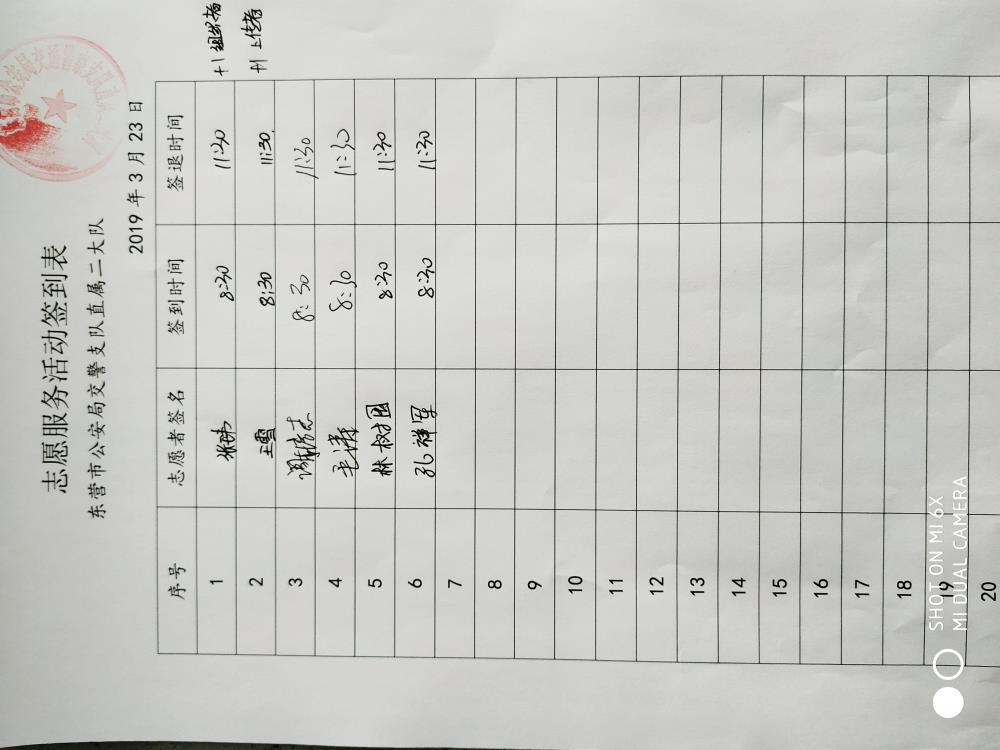 志愿服务活动签到表
东营市公安局交警支队直属二大队
2019 年 3 月 23 日
序号 志愿者签名 签到时间 签退时间
1 8:30 11:30 +1 组织者
2 王雪 8:30 11:30 +1 上传者
3 8:30 11:30
4 8:30 11:30
5 林树国 8:30 11:30
6 孔祥军 8:30 11:30
7
8
9
10
11
12
13
14
15
16
17
18
19
20
SHOT ON MI 6X
MI DUAL CAMERA